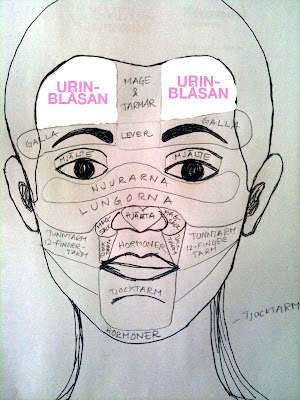 URIN-
BLÅSAN
MAGE
&
TARMAR
URIN-
BLÅSAN
GALLA
LEVER
GALLA
HJÄLTE
HJÄLTE
NJURARNA
LUNGORNA
HJÄRTA
TUNNTARM
12-FINGER-
TARM
HORMONER
TUNNTARM
12-FINGER-
TARM
TJOCKTARM
HORMONER
TJOCKTARM